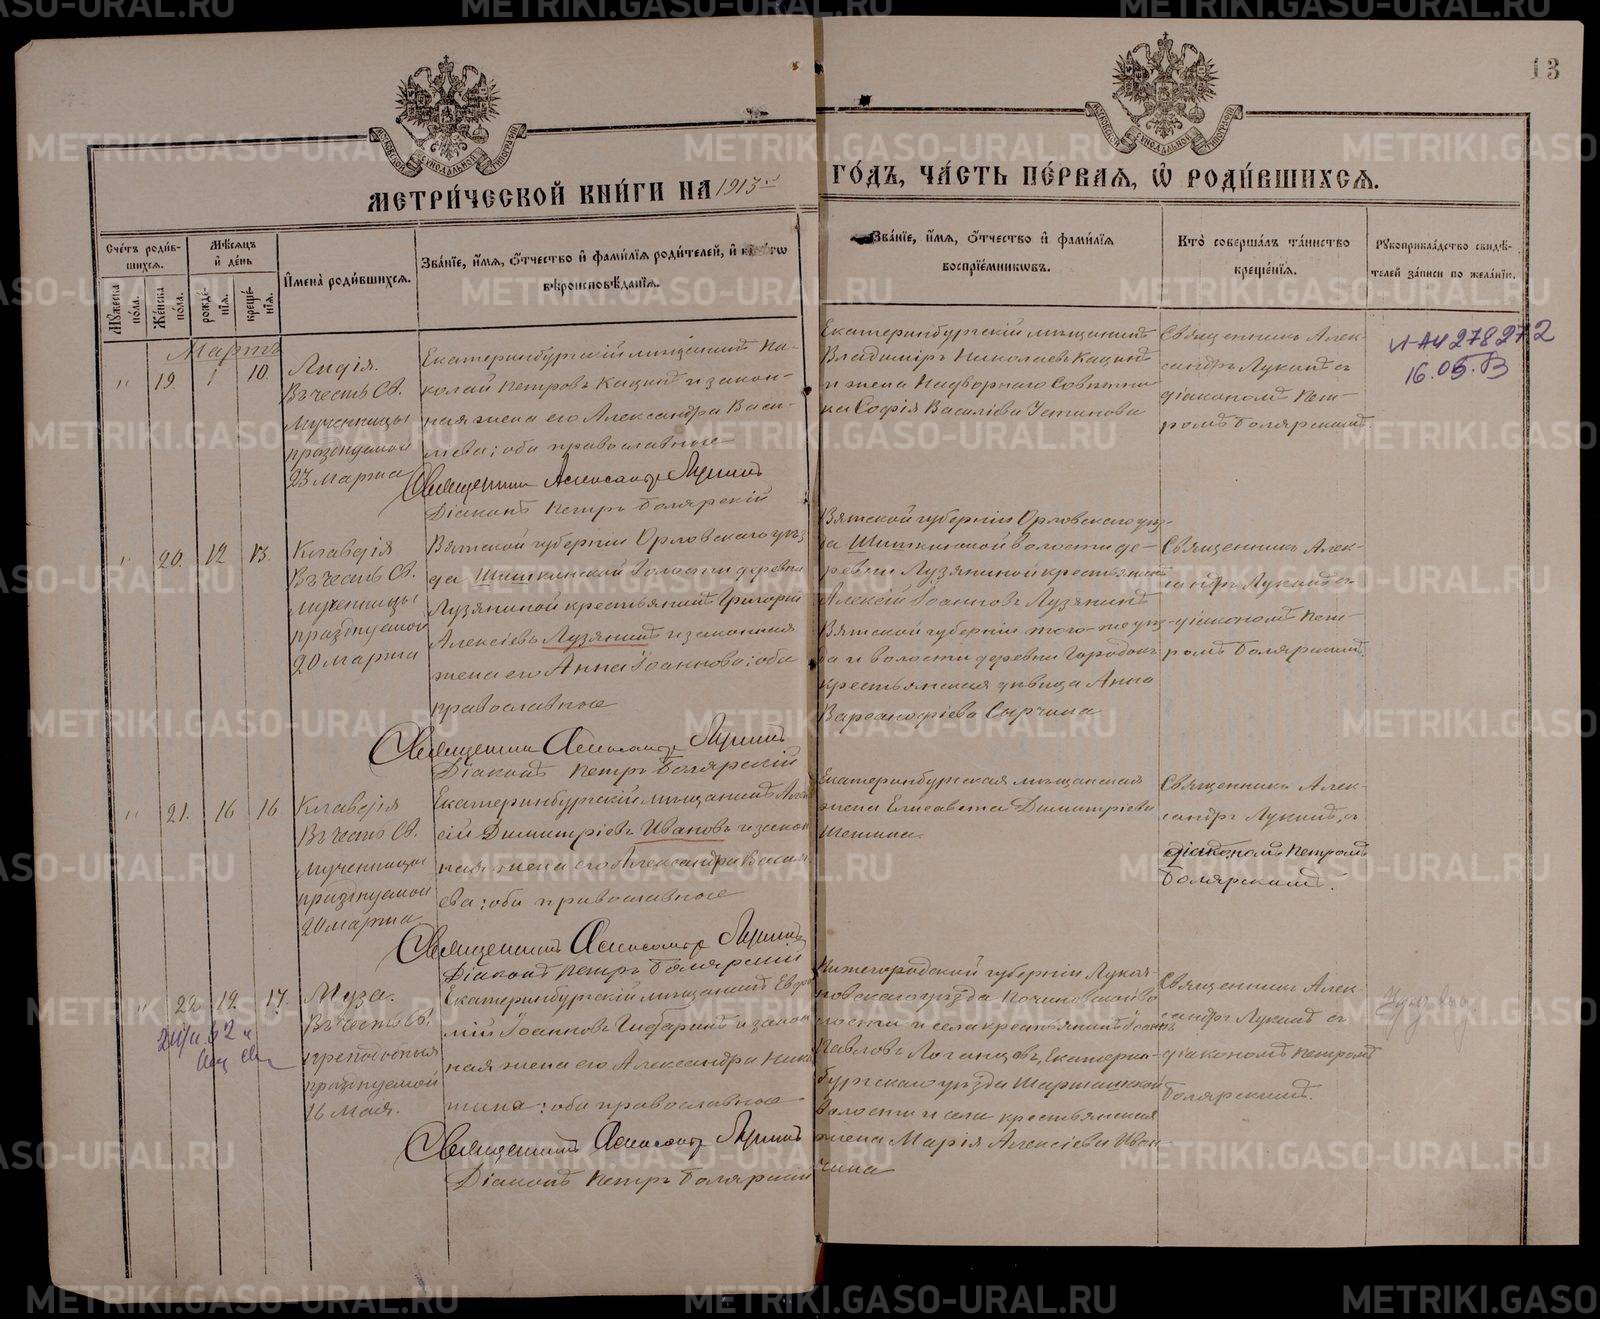 13
МЕТРИ́ЧЕСКОЙ КНИ́ГИ НА 1913й ГО́ДЪ, ЧА́СТЬ ПЕ́РВАЯ, Ѡ҆ РОДИ́ВШИХСѦ.
Сче́тъ роди́в-
шихсѧ.
Мꙋ́жеска по́ла.
Же́нска по́ла.
Мѣ́сѧцъ
и҆ де́нь
рожде́-
нїѧ.
креще́-
нїѧ.
И҆мена̀ роди́вшихсѧ.
Зва́нїе, и҆́мѧ, ѻ҆́тчество и҆ фами́лїѧ роди́телей, и҆
вѣроисповѣ́данїѧ.
Зва́нїе, и҆́мѧ, ѻ҆́тчество и҆ фами́лїѧ
воспрїе́мникѡвъ.
Кто̀ соверша́лъ та́инство
креще́нїѧ.
Рꙋкоприкла́дство свидѣ́-
телей за́писи по жела́нїю.
Мартъ
" 19. 1 10.
Лидія.
Въ честь Св.
мученицы
празднуемой
23 марта
Екатеринбургскій мѣщанинъ Ни-
колай Петровъ Кацинъ и закон-
ная жена его Александра Васи-
ліева; оба православные
Священникъ Александръ Лукинъ
Діаконъ Петръ Болярскій
Екатеринбургскій мѣщанинъ
Владиміръ Николаевъ Кацинъ
и жена Надворнаго Совѣтни-
ка Софія Василіева Устинова
Священникъ Алек-
сандръ Лукинъ съ
діакономъ Пет-
ромъ Болярскимъ.
16.05.
" 20. 12 13.
Клавдія
Въ честь Св.
мученицы
празднуемой
20 марта
Вятской губерніи Орловскаго уѣз-
да Шишкинской волости деревни
Лузяниной крестьянинъ Григорій
Алексіевъ Лузянинъ и законная
жена его Анна Іоаннова; оба
православные
Священникъ Александръ Лукинъ
Діаконъ Петръ Болярскій
Вятской губерніи Орловскаго уѣз-
да Шишкинской волости де-
ревни Лузяниной крестьянинъ
Алексій Іоанновъ Лузянинъ
Вятской губерніи того-же уѣз-
да и волости деревни Городокъ
крестьянская дѣвица Анна
Варсанофіева Сырчина
Священникъ Алек-
сандръ Лукинъ съ
діакономъ Пет-
ромъ Болярскимъ.
" 21. 16 16
Клавдія
Въ честь Св.
мученицы
празднуемой
20 марта
Екатеринбургскій мѣщанинъ Алек-
сій Димитріевъ Ивановъ и закон-
ная жена его Александра Васил-
ева; оба православные
Священникъ Александръ Лукинъ
Діаконъ Петръ Болярскій
Екатеринбургская мѣщанская
жена Елисавета Димитріева
Священникъ Алек-
сандръ Лукинъ, съ
діакономъ Петромъ
Болярскимъ.
" 22 12. 17.
Муза.
Въ честь Св.
преподобныя
празднуемой
16 мая.
Екатеринбургскій мѣщанинъ
Іоанновъ и закон
ная жена его Александра Ники-
тина; оба православные
Священникъ Александръ Лукинъ
Діаконъ Петръ Болярскій
Нижегородской губерніи Лукоя-
новскаго уѣзда Починковской во-
лости и села крестьянинъ Іоаннъ
Павловъ Логанцовъ, Екатерин-
бургскаго уѣзда Шарташской
волости и села крестьянская
жена Марія Алексіева Иван-
чина
Священникъ Алек-
сандръ Лукинъ съ
діакономъ Петромъ
Болярскимъ.
METRIKI.GASO-URAL.RU